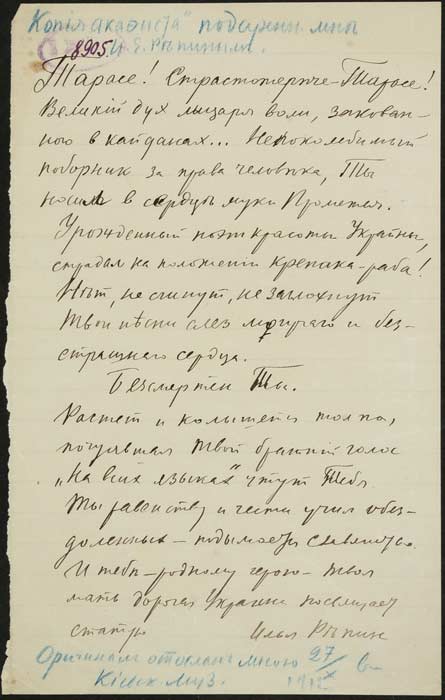 Копія „акафіста“ подаржен. мнѣ
8905 И. Е. Рѣпиным.
Тарасе! Страстотерпче-Тарасе!
Великій дух лыцаря воли, закован-
ного в кайданах... Непоколебимый
поборник за права человѣка, Ты
носил в сердцѣ муки Прометея.
Урожденный поэт красоты Украйны,
страдал на положеніи крепака-раба!
Нѣт, не сгинут, не заглохнут
твои пѣсни слез могучаго и без-
страшнаго сердца.
Безсмертен Ты.
Растет и колышется толпа,
почуявшая твой бранній голос
„На всих языках“ чтут Тебя
Ты равенству и чести учил обез-
доленных – подымается славянство.
И тебѣ – родному герою – твоя
мать дорогая Украина посвящает
статую Илья Рѣпин
Оригинал отослан мною 27/X в
Кіевск. Муз.